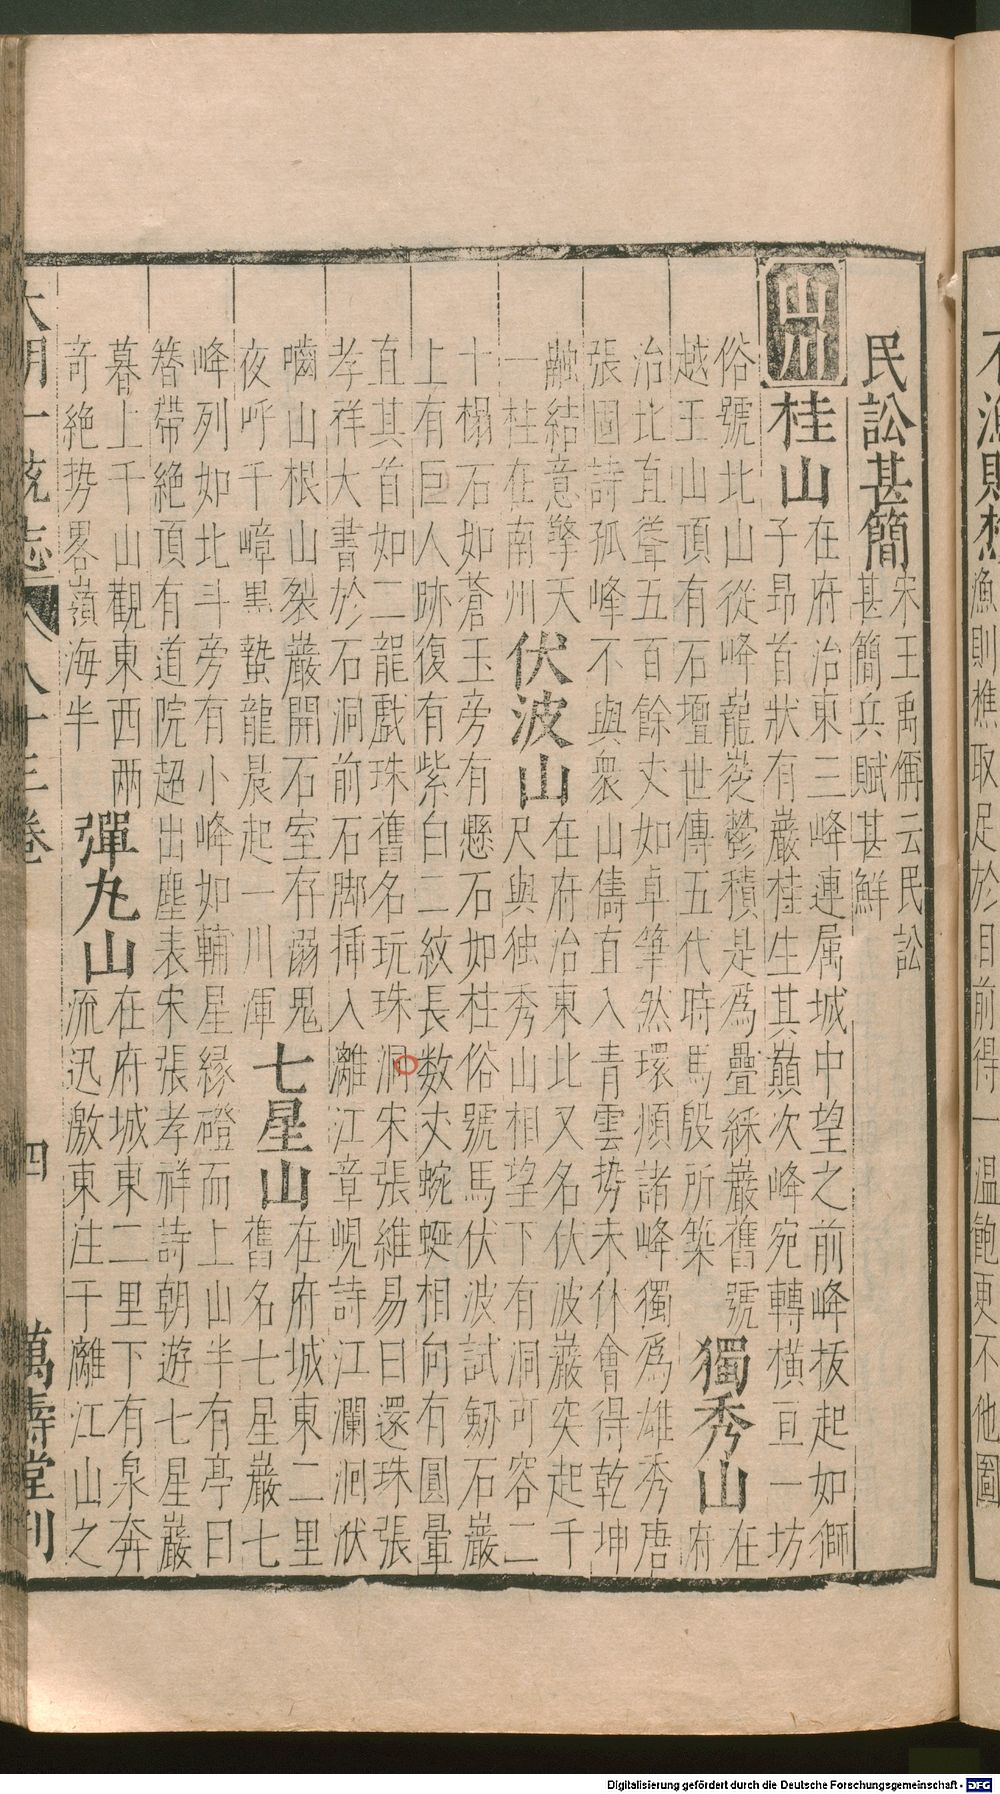 不漁則樵 漁則樵取足於目前得一溫飽更不他圖
民訟甚簡 宋王禹偁云民訟
甚簡兵賦甚鮮
山川 桂山 在府治東三峰連属城中望之前峰拔起如獅
子昂首狀有巖桂生其巔次峰宛轉橫亘一坊
俗號北山從峰巃嵷鬱積是爲疊綵巖舊號
越王山頂有石壇世傳五代時馬殷所築 獨秀山 在
府
治北直聳五百餘丈如卓筆然環順諸峰獨爲雄秀唐
張圖詩孤峰不與衆山儔直入青雲势未休會得乾坤
融結意擎天
一桂在南州 伏波山 在府治東北又名伏波巖突起千
尺與独秀山相望下有洞可容二
十榻石如蒼玉旁有懸石如柱俗號馬伏波試劒石巖
上有巨人跡復有紫白二紋長数丈蜿蜒相向有圓暈
直其首如二龍戲珠舊名玩珠洞宋張維易曰還珠張
孝祥大書於石洞前石脚揷入灕江章峴詩江瀾洄洑
嚙山根山裂巖開石室存溺鬼
夜呼千嶂黒蟄龍晨起一川渾 七星山 在府城東二里
舊名七星巖七
峰列如北斗旁有小峰如輔星縁磴而上山半有亭曰
簪帶絶頂有道院超出塵表宋張孝祥詩朝遊七星巖
暮上千山觀東西两
竒絶势畧嶺海半 彈丸山 在府城東二里下有泉奔
流迅激東注于灕江山之
大明一統志 八十三卷 四 萬壽堂刊
Digitalisierung gefördert durch die Deutsche Forschungsgemeinschaft - DFG